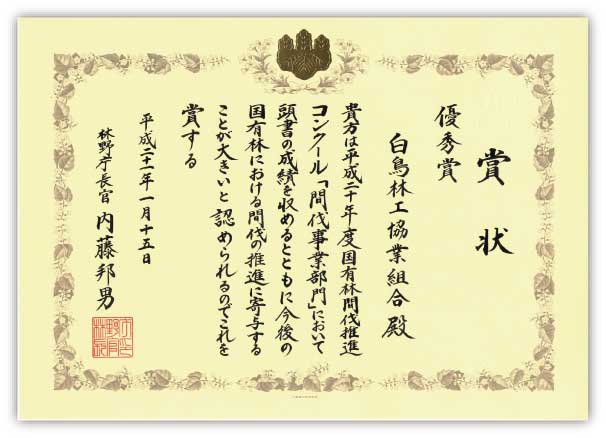 賞状
優秀賞
白鳥林工協業組合殿
貴方は平成二十年度国有林間伐推進
コンクール「間伐事業部門」において
頭書の成績を収めるとともに今後の
国有林における間伐の推進に寄与する
ことが大きいと認められるのでこれを
賞する
平成二十一年一月十五日
林野庁長官 内藤邦男